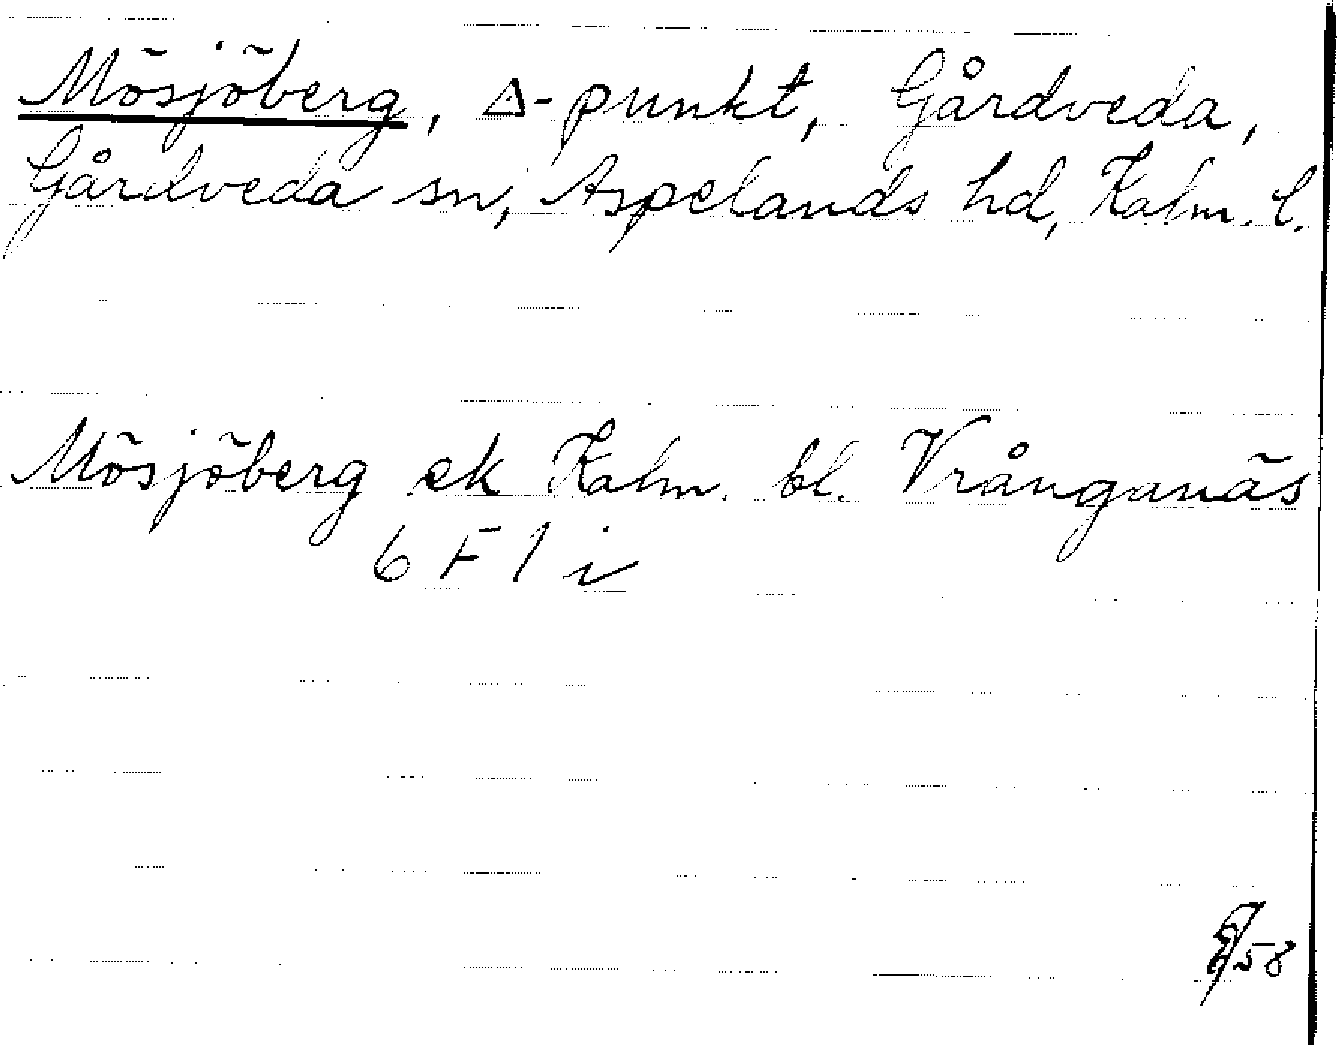 Mösjöberg, Δ-punkt, Gårdveda,
Gårdveda sn, Aspelands hd, Kalm. l.
Mösjöberg ek Kalm. bl. Vrånganäs
6 F 1 i
58